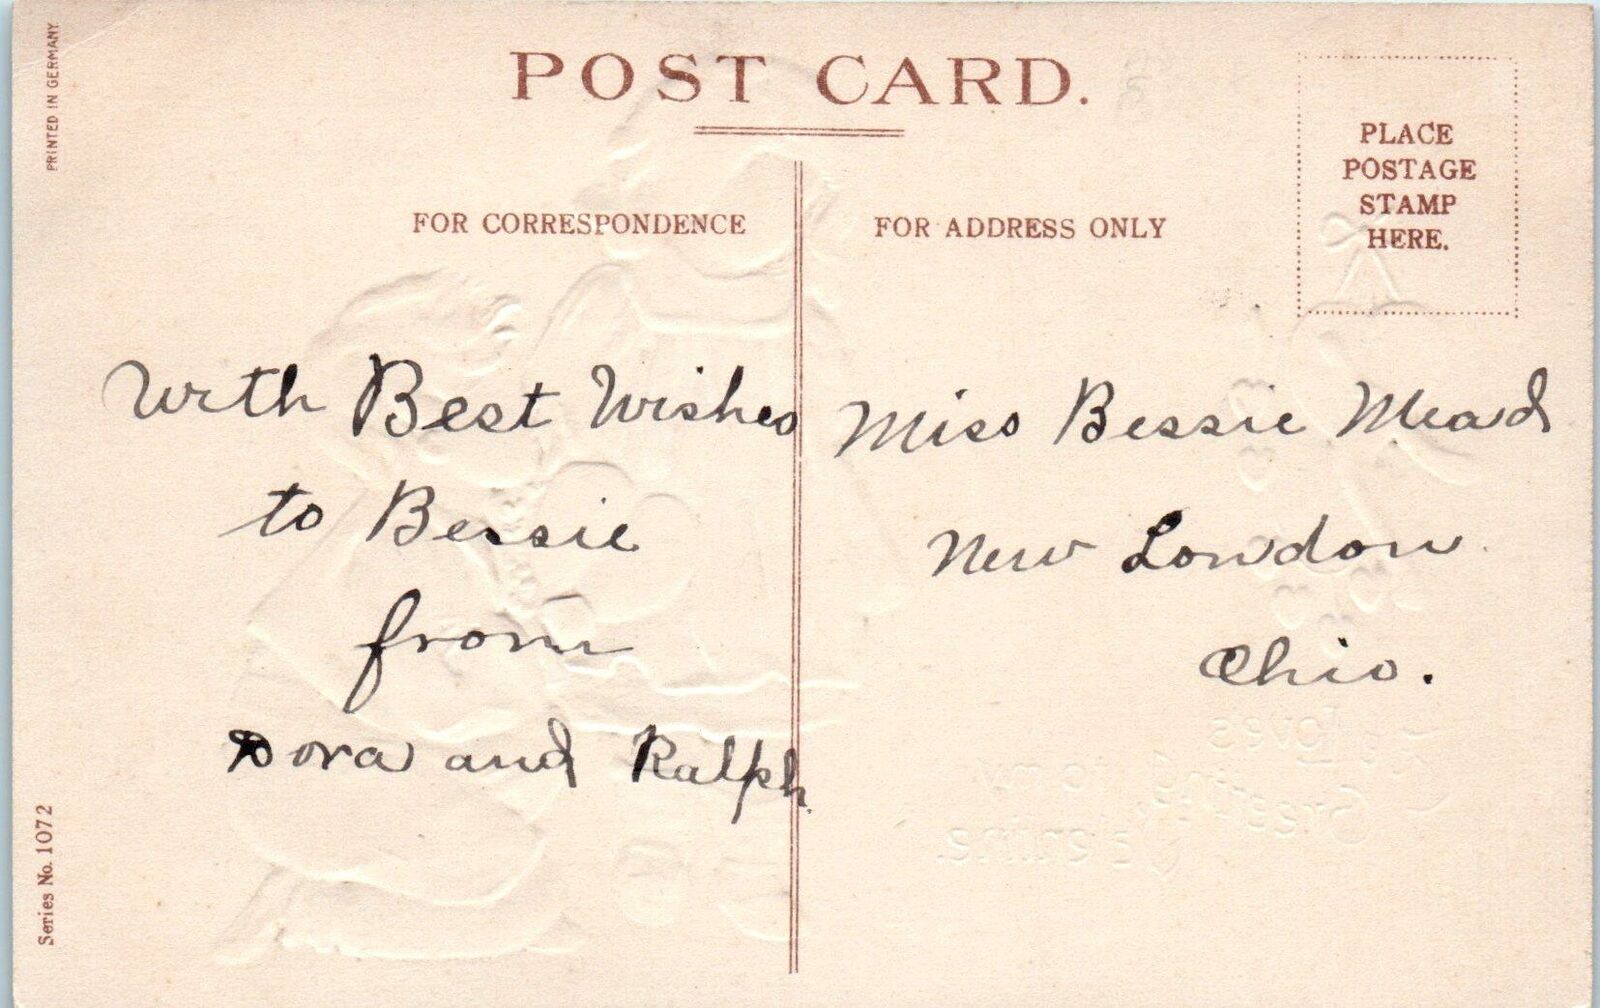 PRINTED IN GERMANY
POST CARD.
PLACE
POSTAGE
STAMP
HERE.
FOR CORRESPONDENCE
FOR ADDRESS ONLY
With Best Wishes
to Bessie
from
Dora and Ralph.
Miss Bessie Mead
New London
Ohio.
Loves
Greeting to my
Valentine.
Series No. 1072